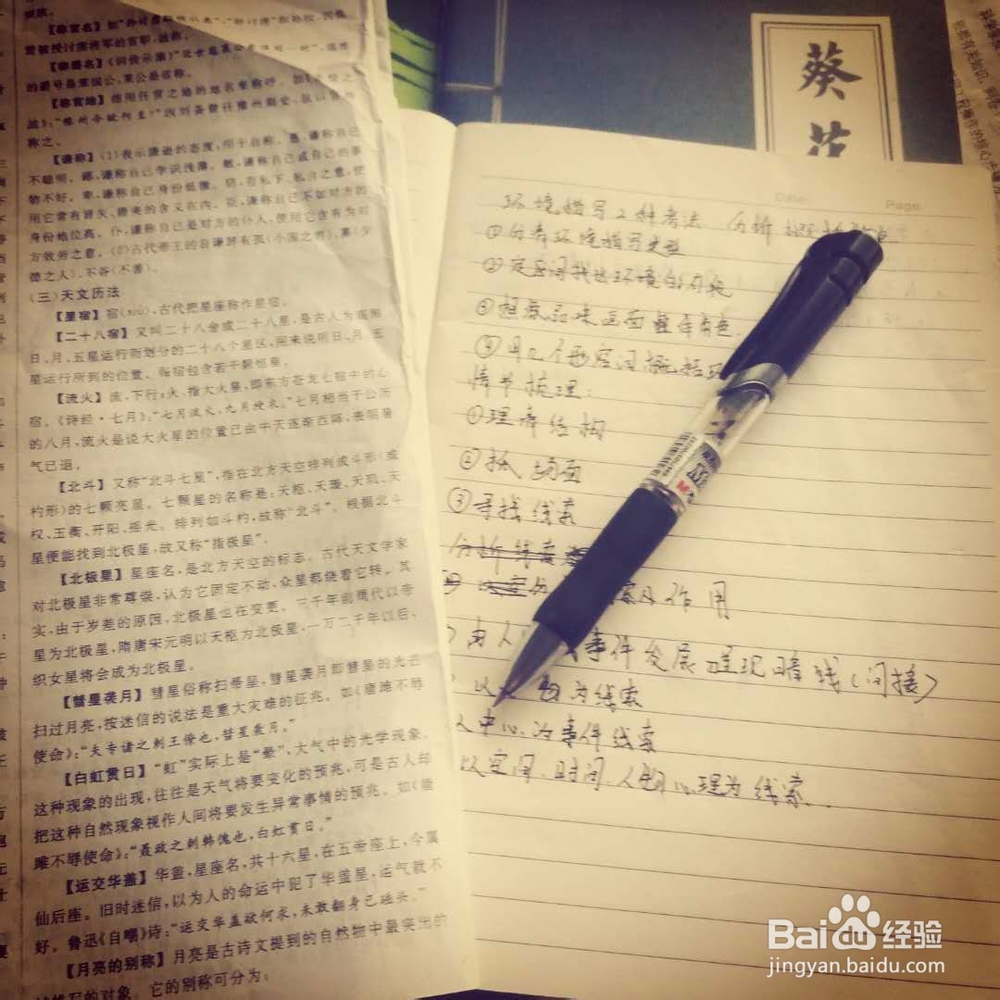 【称官名】
曾被授讨虏将军的官职,故称。
【称爵名】《训俭示康》"近世寇莱公豪侈冠一时",寇准
的爵号是莱国公,莱公是省称。
【称官地】指用任官之地的地名来称呼。如《赤壁之
战》:"豫州今欲何至?"因刘备曾任豫州刺史,故以官地
称之。
【谦称】(1)表示谦逊的态度,用于自称。愚,谦称自己
不聪明。鄙,谦称自己学识浅薄。敝,谦称自己或自己的事
物不好。卑,谦称自己身份低微。窃,有私下、私自之意,使
用它常有冒失、唐突的含义在内。臣,谦称自己不如对方的
身份地位高。仆,谦称自己是对方的仆人,使用它含有为对
方效劳之意。(2)古代帝王的自谦辞有孤(小国之君)、寡(少
德之人)、不谷(不善)。
(三)天文历法
【星宿】宿(xiù),古代把星座称作星宿。
【二十八宿】又叫二十八舍或二十八星,是古人为观测
日、月、五星运行而划分的二十八个星区,用来说明日、月、五
星运行所到的位置。每宿包含若干颗恒星。
【流火】流,下行;火,指大火星,即东方苍龙七宿中的心
宿。《诗经·七月》:"七月流火,九月授衣。"七月相当于公历
的八月,流火是说大火星的位置已由中天逐渐西降,表明暑
气已退。
【北斗】又称"北斗七星",指在北方天空排列成斗形(或
杓形)的七颗亮星。七颗星的名称是:天枢、天璇、天玑、天
权、玉衡、开阳、摇光。排列如斗杓,故称"北斗"。根据北斗
星便能找到北极星,故又称"指极星"。
【北极星】星座名,是北方天空的标志。古代天文学家
对北极星非常尊崇,认为它固定不动,众星都绕着它转。其
实,由于岁差的原因,北极星也在变更。三千年前周代以帝
星为北极星,隋唐宋元明以天枢为北极星,一万二千年以后,
织女星将会成为北极星。
【彗星袭月】彗星俗称扫帚星,彗星袭月即彗星的光芒
扫过月亮,按迷信的说法是重大灾难的征兆。如《唐雎不辱
使命》:"夫专诸之刺王僚也,彗星袭月。"
【白虹贯日】"虹"实际上是"晕",大气中的光学现象。
这种现象的出现,往往是天气将要变化的预兆,可是古人却
把这种自然现象视作人间将要发生异常事情的预兆。如《唐
雎不辱使命》:"聂政之刺韩傀也,白虹贯日。"
【运交华盖】华盖,星座名,共十六星,在五帝座上,今属
仙后座。旧时迷信,以为人的命运中犯了华盖星,运气就不
好。鲁迅《自嘲》诗:"运交华盖欲何求,未敢翻身已碰头。"
【月亮的别称】月亮是古诗文提到的自然物中最突出的
被描写的对象。它的别称可分为:
葵花
Date: Page:
环境描写2种考法 分析
①分弄环境描写类型
②定空间找出环境的
③想象品味画面整体角色
④用几个形容词概括
情节梳理:
①理弄结构
②抓场面
③寻找线索
分析线索
作用
由人 事件发展呈现暗线(间接)
以 物为线索
中心为事件线索
以空间、时间、人物心理为线索.
Baidu经验
jingyan.baidu.com